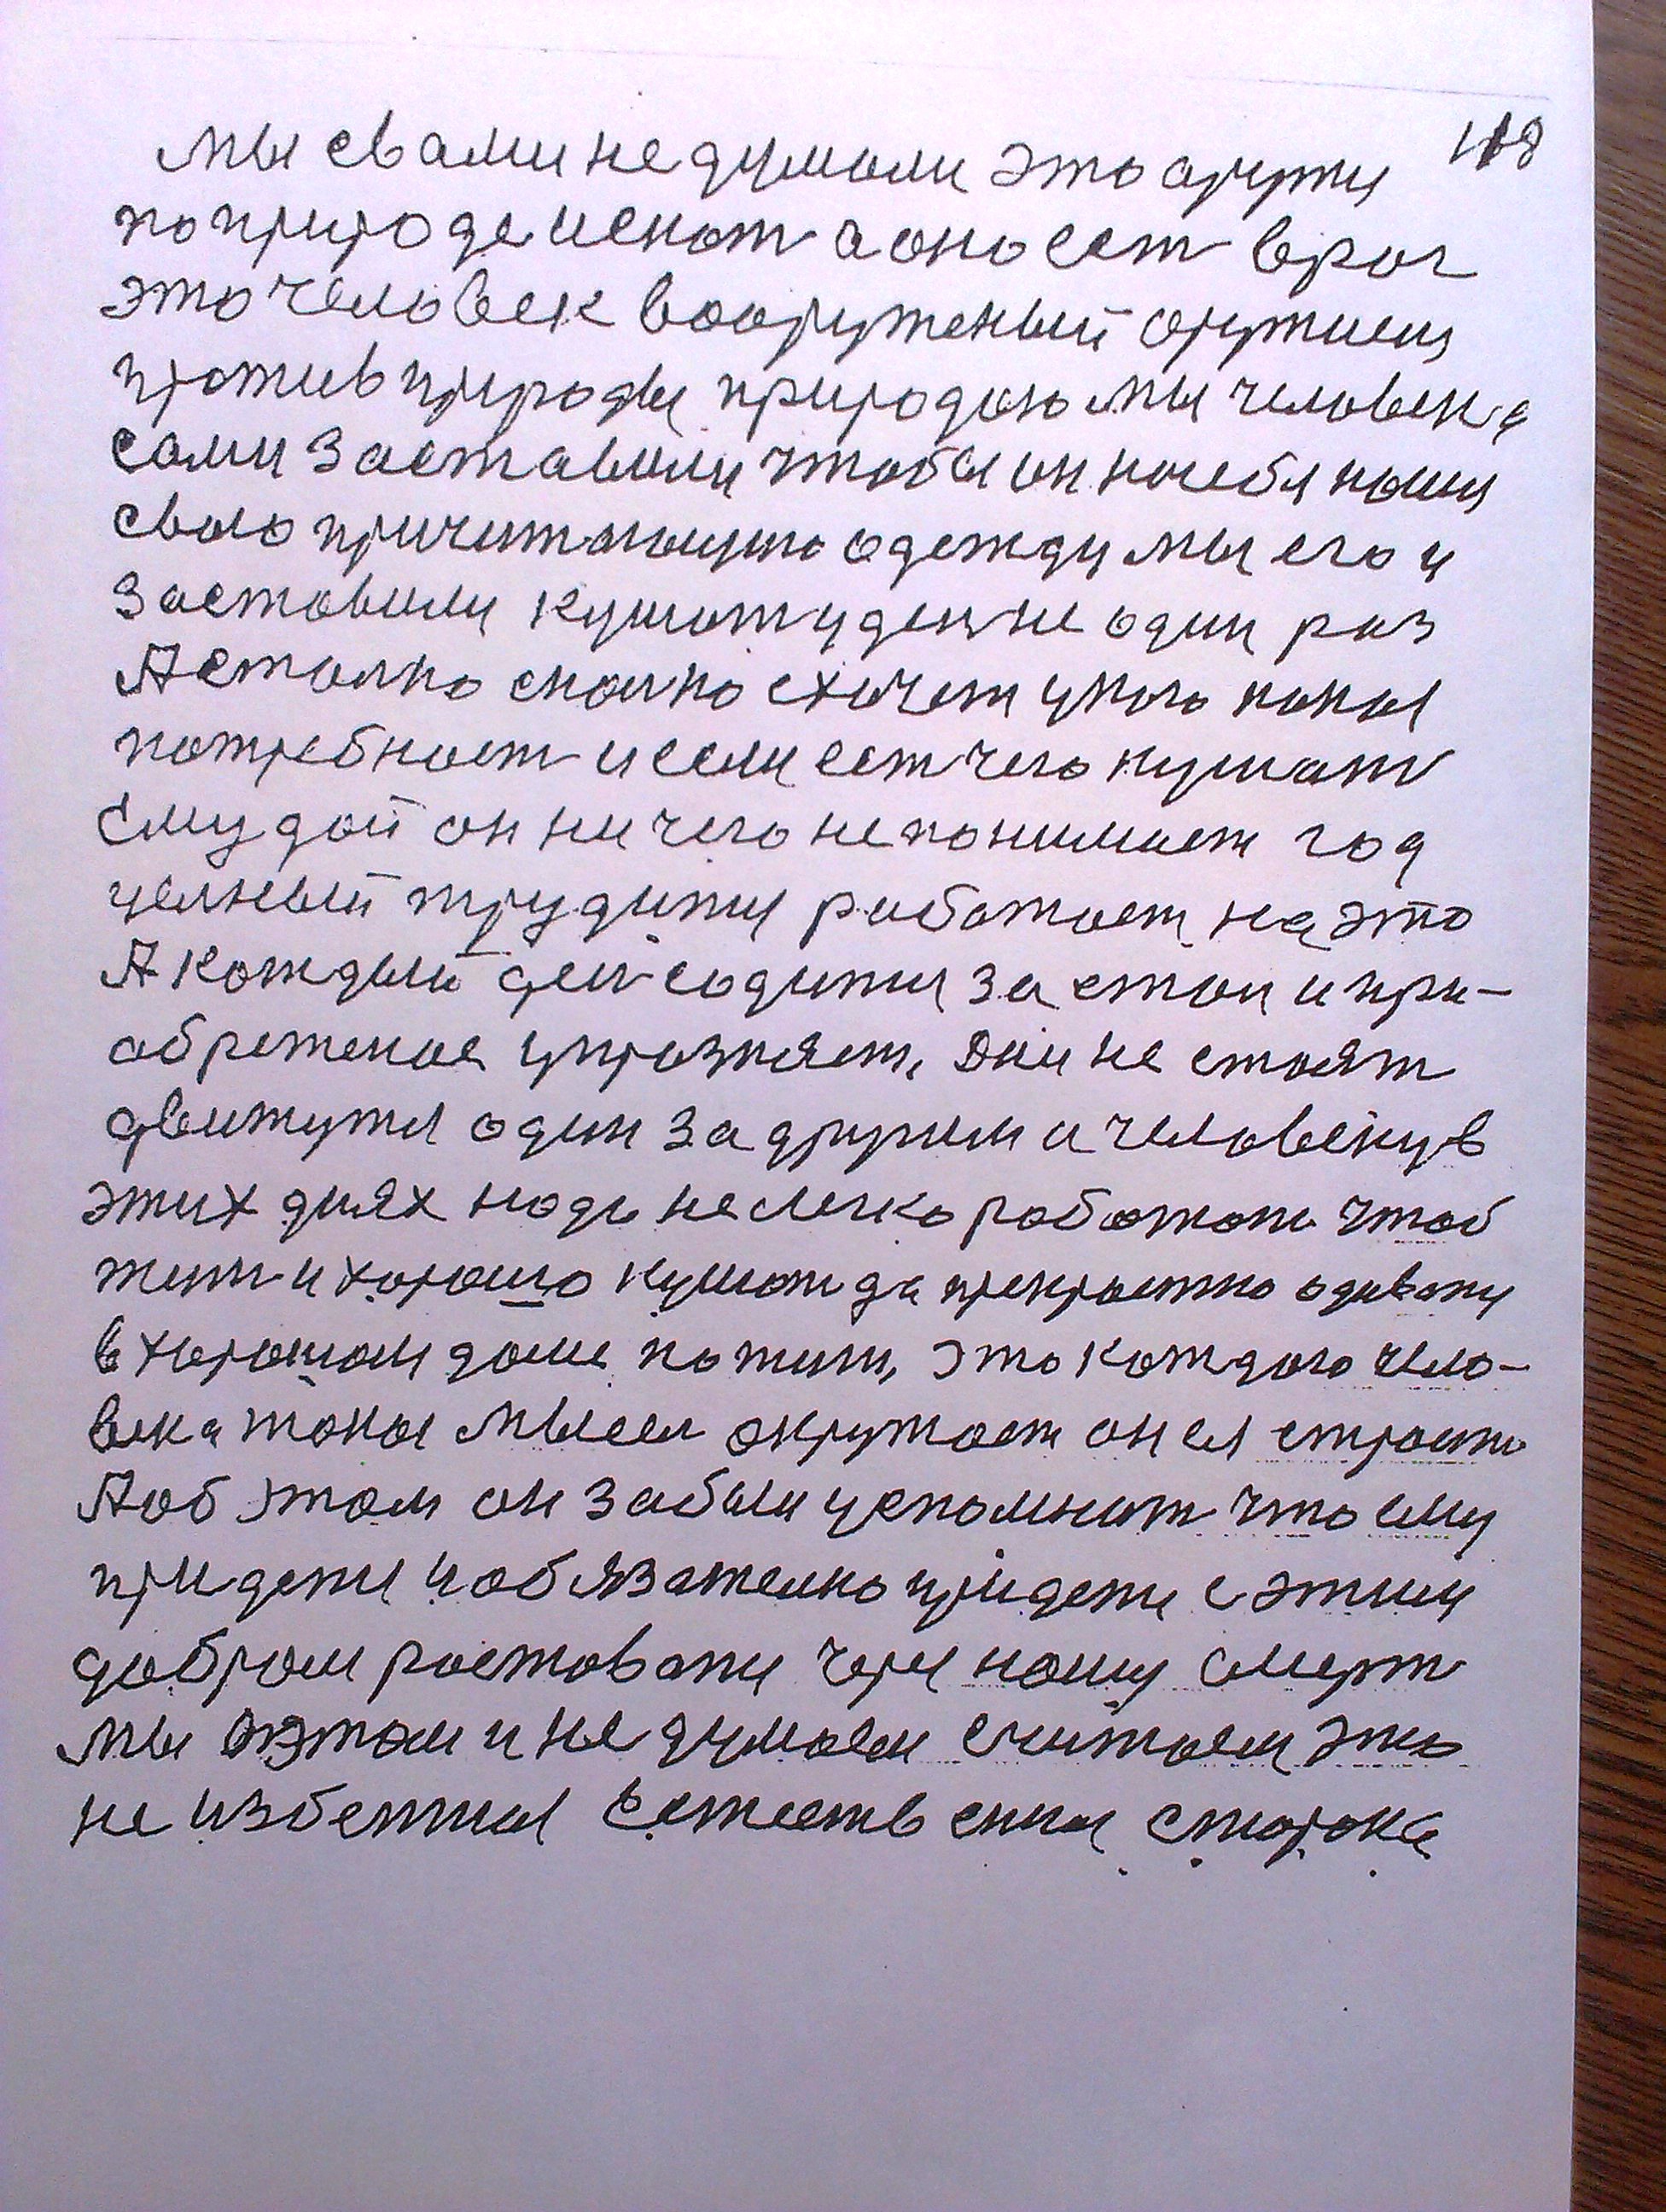 118
мы свами не думали это оружия
по природе искат а оно ест враг
это человек вооруженый оружием
против природы природою мы человека
сами заставили чтобы он на себя нашил
свою причитающую одежду мы его и
заставили кушат и ден не один раз
А столко сколко схочет у кого какая
потребност и если ест чего кушат
ему дай он ни чего не понимает год
целный трудится работает на это
А каждый ден садится за стол и при-
обретеное упразняет, Дни не стоят
движутся один за другим и человеку в
этих днях надо не легко работать чтоб
жит и хорошо кушат да прекрастно одиватся
в хорошом доме пожит, это каждого чело-
века такая мысел окружает он ея строит
А об этом он забыл успомнит что ему
придется и обязателно придется с этим
добром растоватся через нашу смерт
мы об этом и не думаем считаем это
не избежная естественая сторона